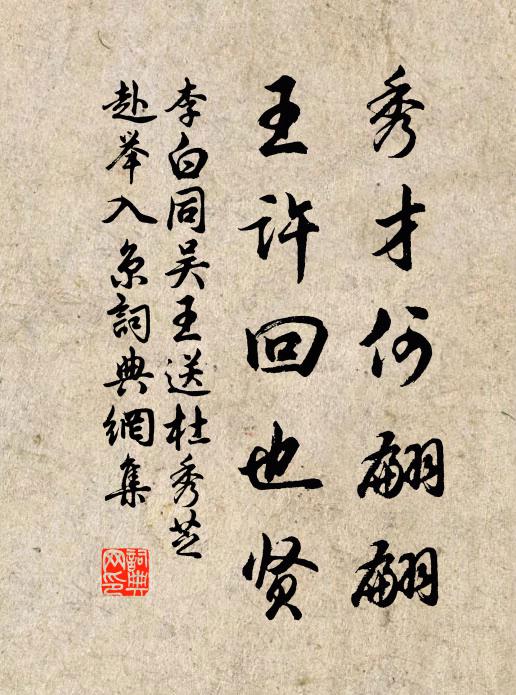 秀才何翩翩
王许回也贤
李白同吴王送杜秀芝
赴举入京词典網集
詞典网印